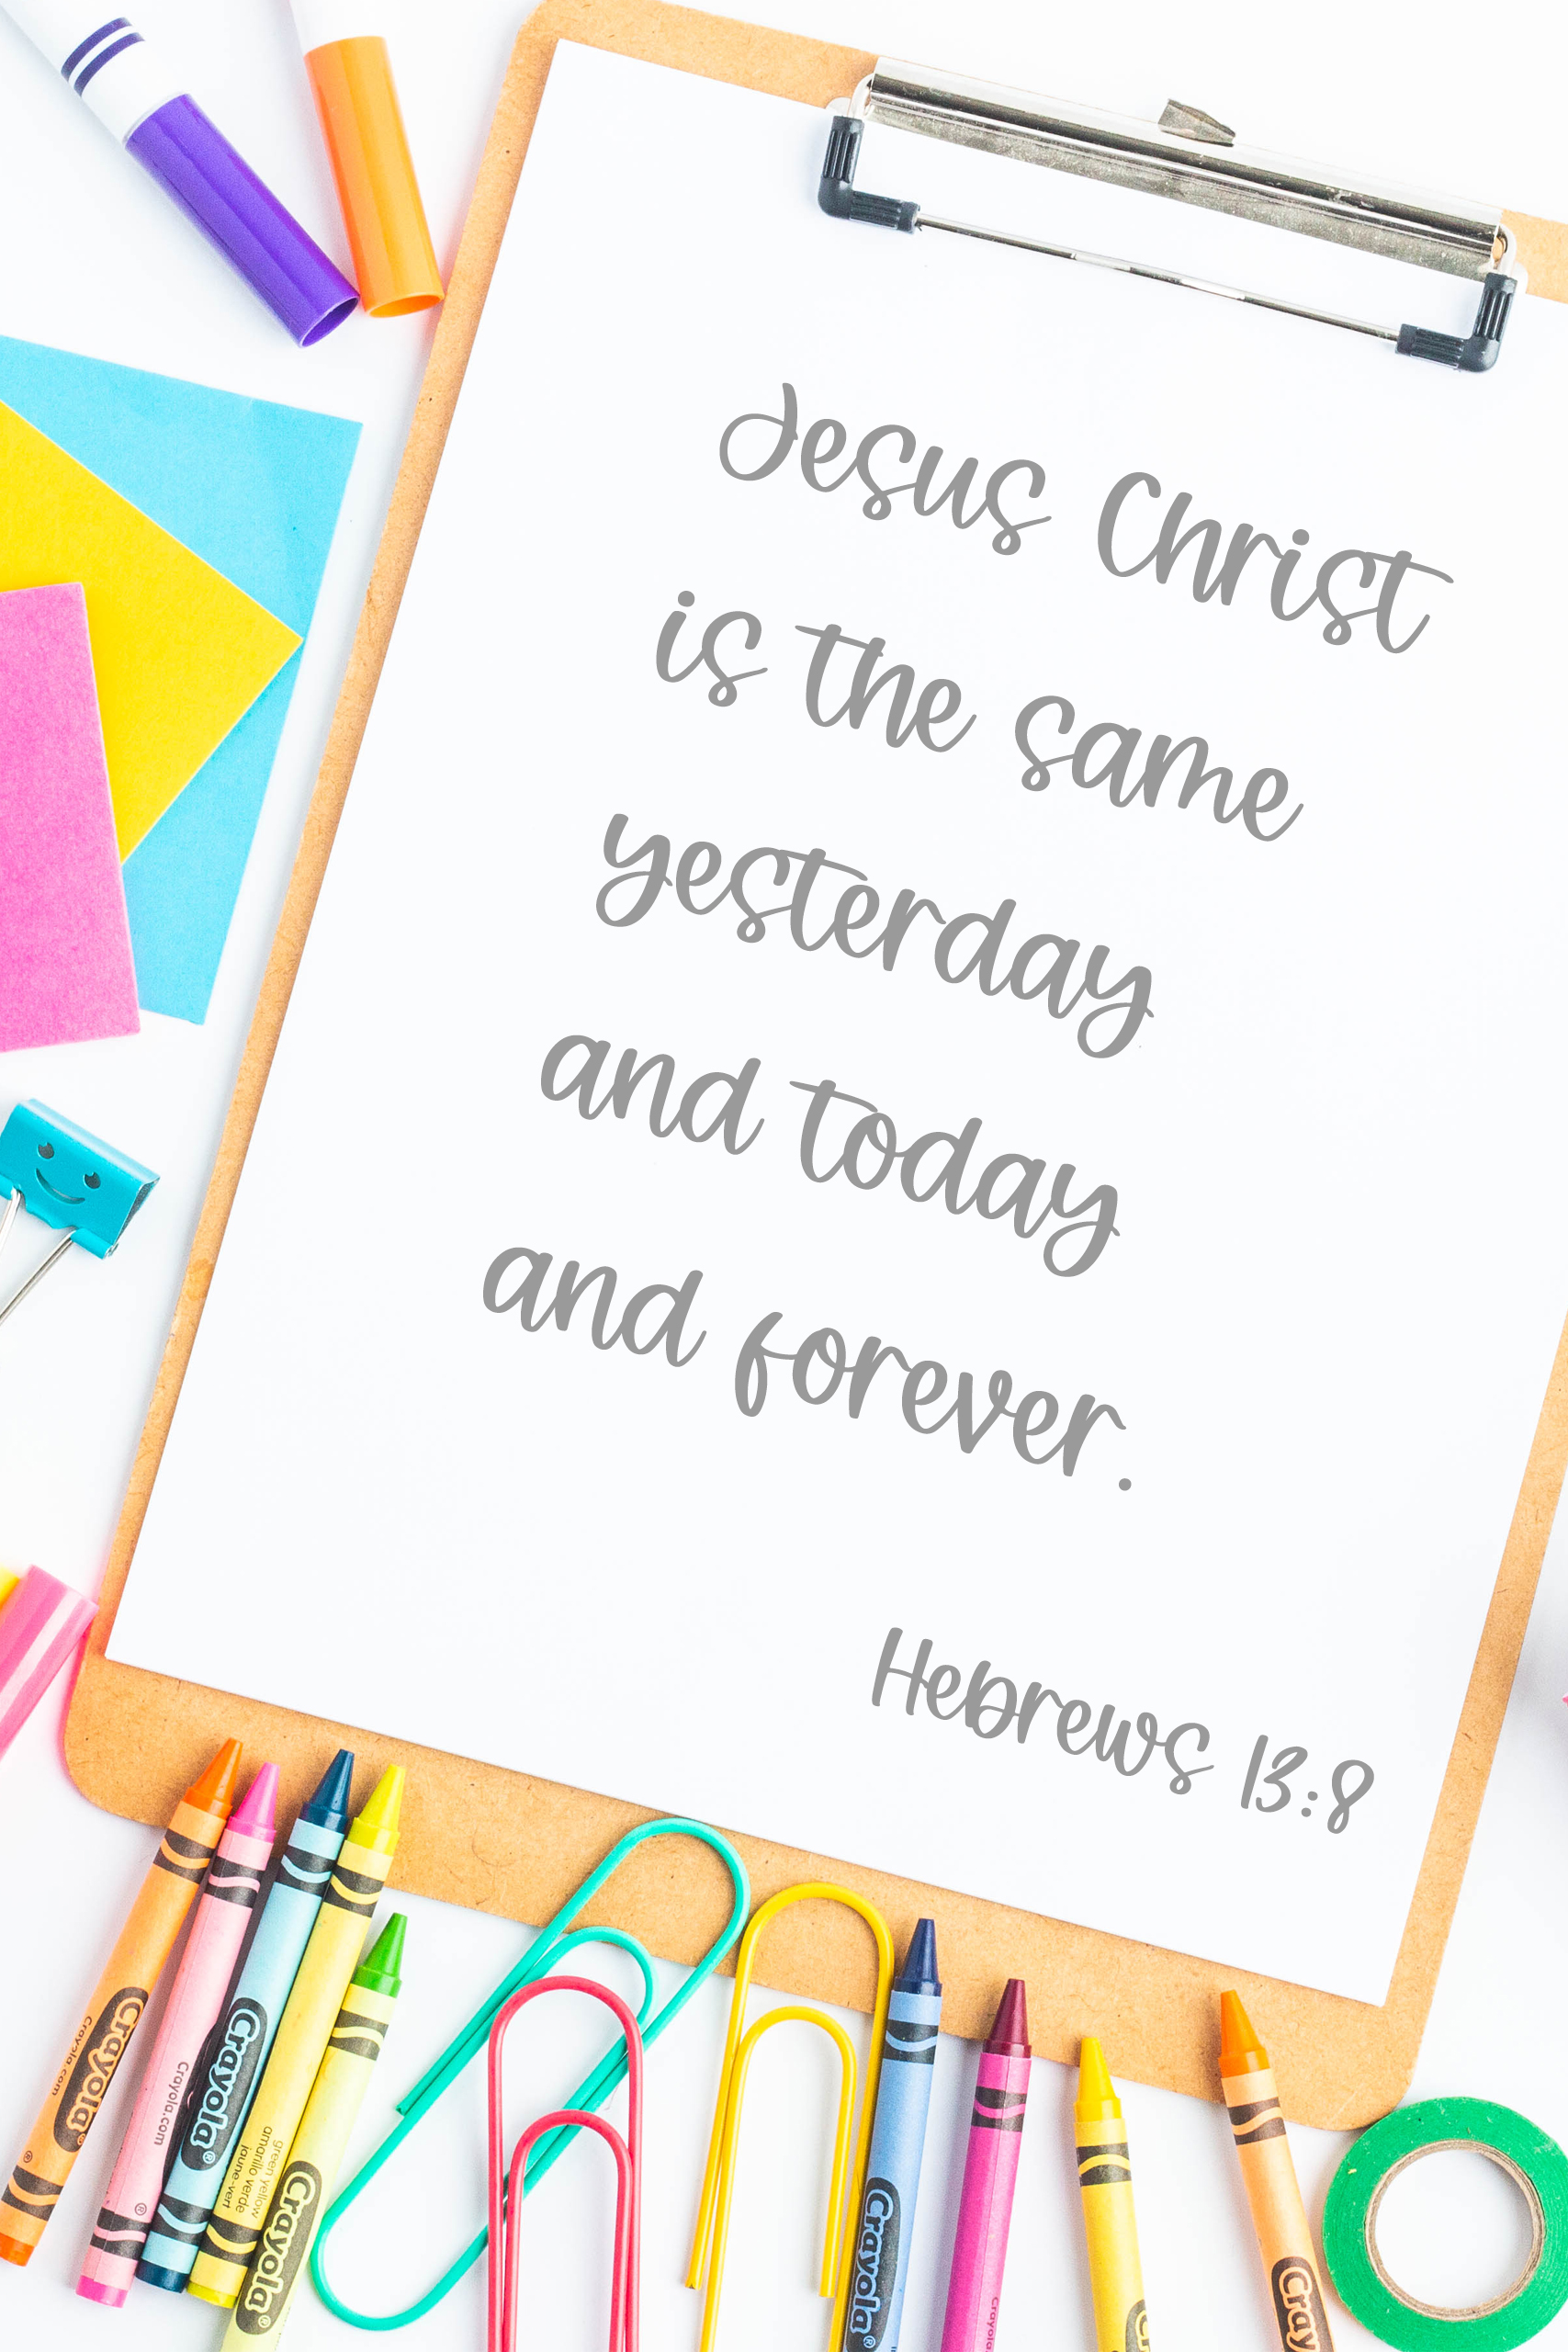 Jesus Christ
is the same
yesterday
and today
and forever.
Hebrews 13:8
Crayola
crayola.com
Crayola
crayola.com
Crayola
green yellow
amarillo verde
jaune-vert
Crayola
Crayola
crayola
Cray